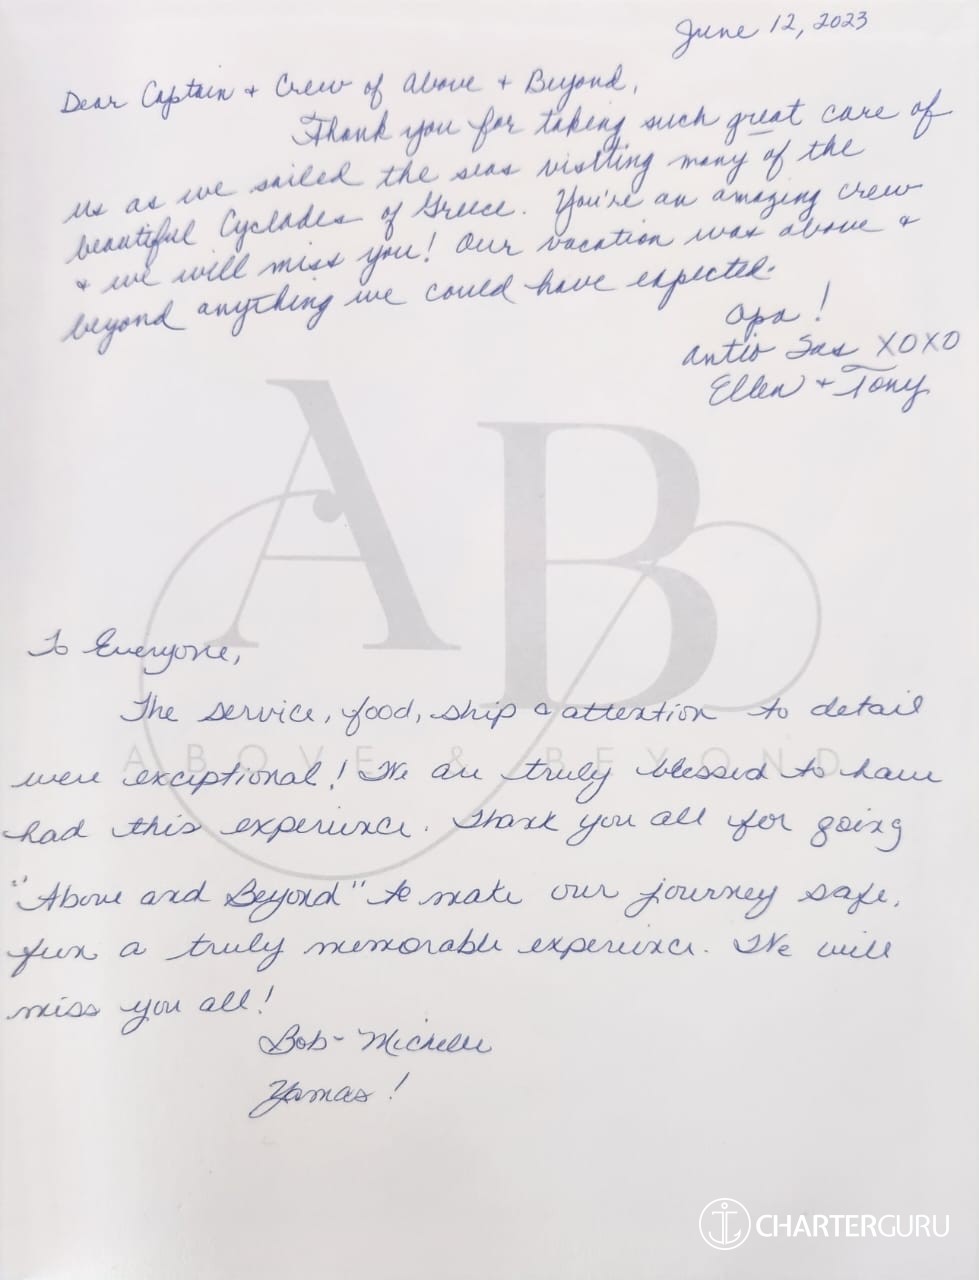 June 12, 2023
Dear Captain + Crew of Above + Beyond,
Thank you for taking such great care of
us as we sailed the seas visiting many of the
beautiful Cyclades of Greece. You're an amazing crew
+ we will miss you! Our vacation was above +
beyond anything we could have expected.
Opa!
Antio Sas XOXO
Ellen + Tony
AB
To Everyone,
The service, food, ship & attention to detail
ABOVE & BEYOND
were exceptional! We are truly blessed to have
had this experience. Thank you all for going
"Above and Beyond" to make our journey safe,
fun a truly memorable experience. We will
miss you all!
Bob - Michelle
Yamas!
CHARTERGURU